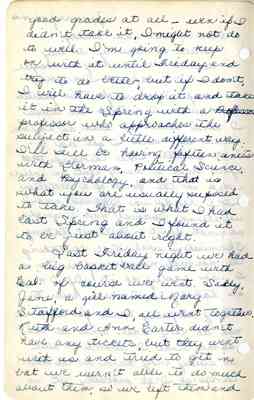 good grades at all - well if I
didn't take it, I might not do
so well. I'm going to keep
on with it until Friday and
try to do better, but if I don't,
I will have to drop it and take
it in the Spring with a
professor who approaches the
subject in a little different way.
I'll still be having fifteen units
with German, Political Science,
and Psychology, and that is
what you are usually supposed
to take. That is what I had
last Spring and I found it
to be just about right.
Last Friday night we had
a big basketball game with
Cal. Of course we went. Sally,
Jane, a girl named Marge
Stafford and I, all went together.
Ruth and Ann Carter didn't
have any tickets, but they went
with us and tried to get in
but we weren't able to do much
about them, so we left them and